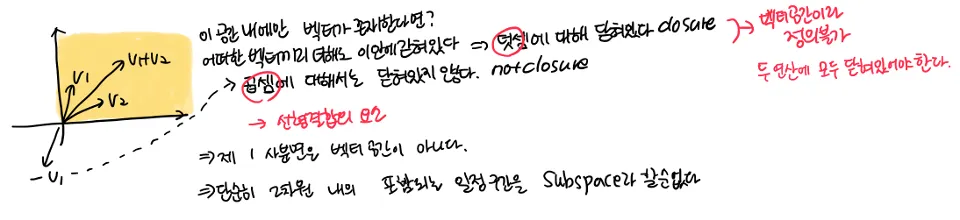 이 공간 내에만 벡터가 존재한다면?
어떠한 벡터끼리 더해도 이 안에 갇혀있다 ⇒ 덧셈에 대해 닫혀있다 closure
곱셈에 대해서는 닫혀있지 않다. not closure
→ 선형결합의 요소
벡터공간이라
정의불가
두 연산에 모두 닫혀있어야한다.
⇒ 제 1 사분면은 벡터공간이 아니다.
⇒ 단순히 2차원 내의 포함되는 일정구간을 Subspace라 할 수 없다
V₁
V₁+V₂
V₂
-V₁